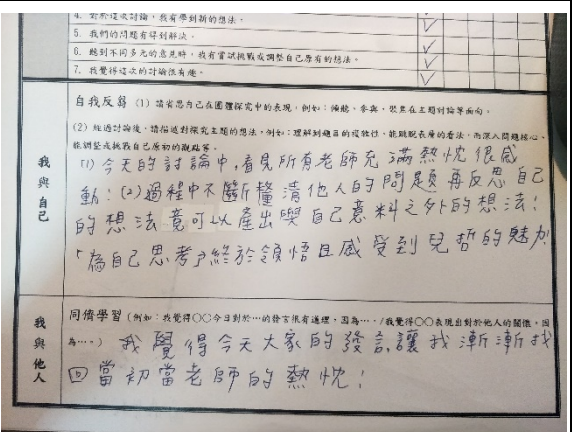 4. 對於這次討論，我有學到新的想法。
5. 我們的問題有得到解決。
6. 聽到不同多元的意見時，我有嘗試挑戰或調整自己原有的想法。
7. 我覺得這次的討論很有趣。
我與自己
自我反芻 (1) 請省思自己在團體探究中的表現，例如：傾聽、參與、聚焦在主題討論等面向。
(2) 經過討論後，請描述對探究主題的想法，例如：理解到題目的複雜性，能跳脫表層的看法，而深入問題核心、
能調整或挑戰自己原初的觀點等。
(1) 今天的討論中，看見所有老師充滿熱忱很感
動；(2) 過程中不斷釐清他人的問題再反思自己
的想法竟可以產出與自己意料之外的想法！
「為自己思考」終於領悟且感受到兒哲的魅力
我與他人
同儕學習 (例如：我覺得〇〇今日對於…的發言很有道理，因為…。/我覺得〇〇表現出對於他人的關懷，因
為…。) 我覺得今天大家的發言讓我漸漸找
回當初當老師的熱忱！